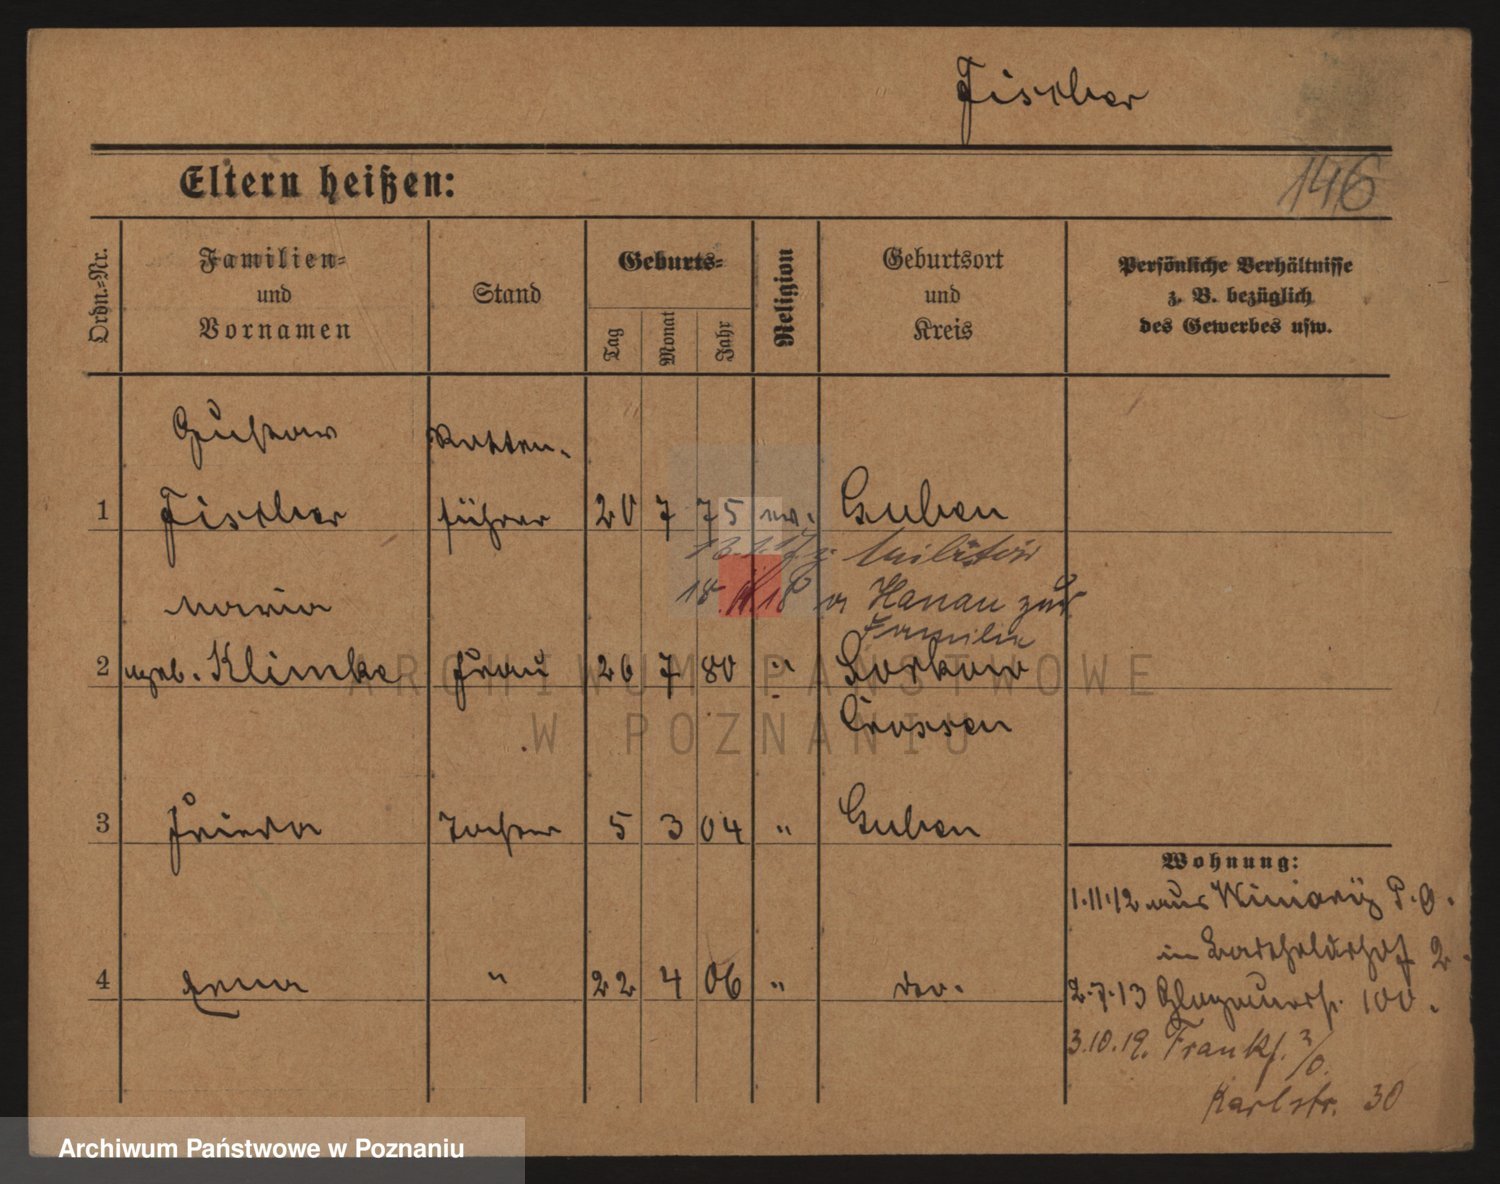 Fischer
146
Eltern heißen:
Ordn.-Nr.
Familien-
und
Vornamen
Stand
Geburts-
Tag
Monat
Jahr
Religion
Geburtsort
und
Kreis
Persönliche Verhältnisse
z. B. bezüglich
des Gewerbes usw.
Gustav Rotten-
1 Fischer führer 20 7 75 ev. Guben
13.1.17 z. Militär
18. 11. 18 v Hanau zur
Familie
Maria
2 geb. Klimke Frau 26 7 80 "
Crossen
3 Frieda Tochter 5 3 04 " Guben
Wohnung:
1.11.12 aus Winiary P. O.
in 2.
4 Erna " 22 4 06 " do.
2.7.13 Glogauerstr. 100.
3.10.19. Frankf. a/O.
Karlstr. 30
ARCHIWUM PAŃSTWOWE
W POZNANIU
Archiwum Państwowe w Poznaniu